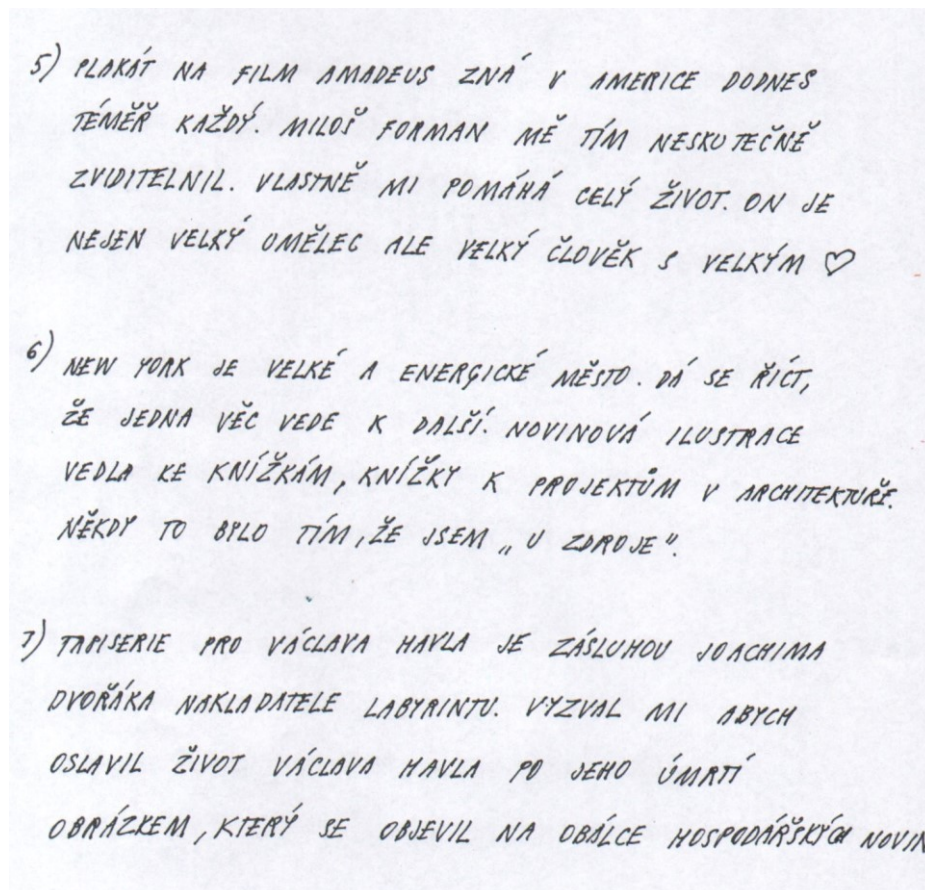 5) PLAKÁT NA FILM AMADEUS ZNÁ V AMERICE DODNES
TÉMĚŘ KAŽDÝ. MILOŠ FORMAN MĚ TÍM NESKUTEČNĚ
ZVIDITELNIL. VLASTNĚ MI POMÁHÁ CELÝ ŽIVOT. ON JE
NEJEN VELKÝ UMĚLEC ALE VELKÝ ČLOVĚK S VELKÝM ♡
6) NEW YORK JE VELKÉ A ENERGICKÉ MĚSTO. DÁ SE ŘÍCT,
ŽE JEDNA VĚC VEDE K DALŠÍ. NOVINOVÁ ILUSTRACE
VEDLA KE KNÍŽKÁM, KNÍŽKY K PROJEKTŮM V ARCHITEKTUŘE.
NĚKDY TO BYLO TÍM, ŽE JSEM „U ZDROJE".
7) TAPISERIE PRO VÁCLAVA HAVLA JE ZÁSLUHOU JOACHIMA
DVOŘÁKA NAKLADATELE LABYRINTU. VYZVAL MI ABYCH
OSLAVIL ŽIVOT VÁCLAVA HAVLA PO JEHO ÚMRTÍ
OBRÁZKEM, KTERÝ SE OBJEVIL NA OBÁLCE HOSPODÁŘSKÝCH NOVIN